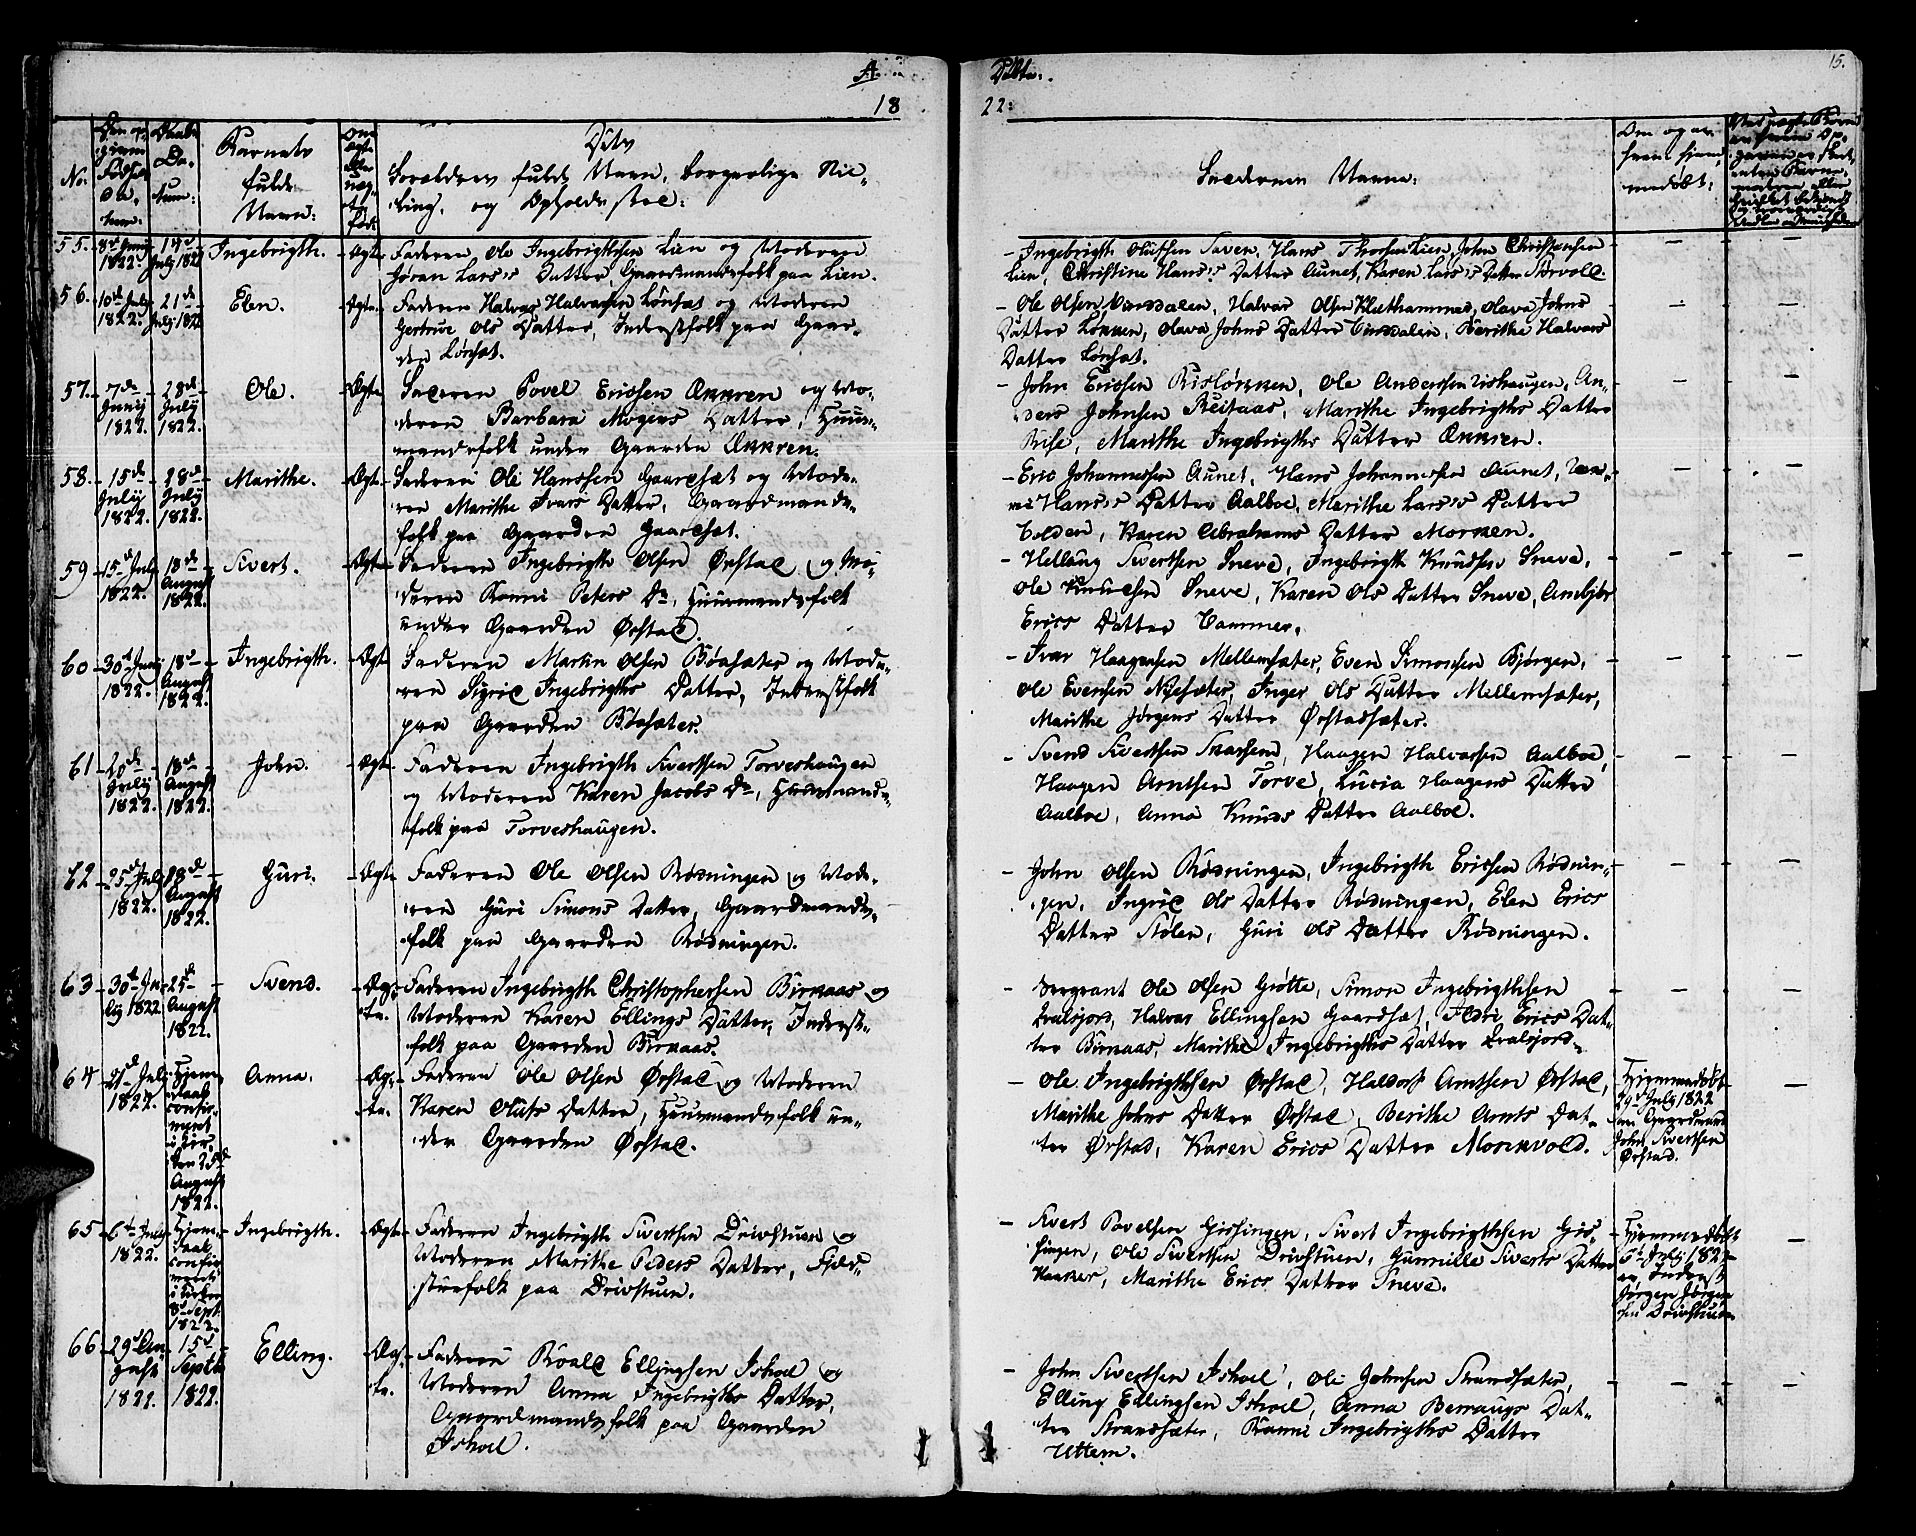 A. Døbte.
15.
18 22:
No.
Barnets fulde Navn:
Forældres fulde Navn, borgerlige Stilling, og Opholdssted:
Faddernes Navne:
55. 8de Junij 1822. 14d July 1822 Ingebrigth. Ægte
Faderen Ole Ingebrigthsen Lien og Moderen
Joran Lars's Datter, Gaardmandsfolk paa Lien.
Ingebrigth Olufsen Haven, Hans Thorsen Lien, John Christensen
Lien, Christine Hans's Datter Aunet, Karen Lars's Datter Sørvold.
56. 10de July 1822. 21de July 1822 Elen. Ægte
Faderen Halvar Halvarsen Lønset og Moderen
Gertrue Ols Datter, Inderstfolk paa Gaar-
den Lønset.
Ole Olsen Vinddalen, Halvar Olsen Klethammer, Olava Johns
Datter Lønnen, Olava Johns Datter Vinddalen, Berithe Halvars
Datter Lønset.
57. 7de Junij 1822. 28de July 1822. Ole. Ægte
Faderen Povel Ericsen Ænnren og Mo-
deren Barbara Mogens Datter, Huus-
mandsfolk under Gaarden Ænnren.
John Ericsen Rislønnen, Ole Anderssen Rishaugen, An-
ders Johnsen Reitaas, Marithe Ingebrigths Datter
Rise, Marithe Ingebrigths Datter Ænnren.
58. 15de July 1822. 28de July 1822. Marithe. Ægte
Faderen Ole Hanssen Gaardset og Mode-
ren Marithe Ivars Datter, Gaardmands-
folk paa Gaarden Gaardset.
Eric Johannessen Aunet, Hans Johannessen Aunet,
Hans's Datter Aalboe, Marithe Lars's Datter
Volden, Karen Abrahams Datter Morken.
59 15de July 1822. 18de August 1822. Sivert. Ægte
Faderen Ingebrigth Olsen Ørstad og Mo-
deren Ronni Peters Dr, Huusmandsfolk
under Gaarden Ørstad.
Hellaug Sivertsen Sneve, Ingebrigth Knudsen Sneve,
Ole Knudsen Sneve, Karen Ols Datter Sneve, Ambjør
Erics Datter Hammer.
60 30d Junij 1822. 18d August 1822. Ingebrigth. Ægte
Faderen Martin Olsen Bøasæter og Mode-
ren Sigrid Ingebrigths Datter, Inderstfolk
paa Gaarden Bøasæter.
Ivar Haagensen Mellemsæter, Even Simonsen Bjørgen,
Ole Evensen Nysæter, Inger Ols Datter Mellemsæter,
Marithe Jørgens Datter Ørstadsæter.
61 20de July 1822. 18de August 1822. John. Ægte
Faderen Ingebrigth Sivertsen Torveshaugen
og Moderen Karen Jacobs Dr, Huusmands-
folk paa Torveshaugen.
Svend Sivertsen Snarsem, Haagen Halvarsen Aalboe,
Haagen Arntsen Torve, Lucia Haagens Datter
Aalboe, Anna Knuds Datter Aalboe.
62 25d July 1822. 18de August 1822. Guri. Ægte
Faderen Ole Olsen Rødningen og Mode-
ren Guri Simons Datter, Gaardmands-
folk paa Gaarden Rødningen.
John Olsen Rødningen, Ingebrigth Ericsen Rødnin-
gen, Ingrid Ols Datter Rødningen, Elen Erics
Datter Stølen, Guri Ols Datter Rødningen.
63 30d Ju-
ly 1822 25de August 1822. Svend. Æg-
te.
Faderen Ingebrigth Christophersen Birnaas og
Moderen Karen Ellings Datter, Inderst-
folk paa Gaarden Birnaas.
Sergeant Ole Olsen Grøtte, Simon Ingebrigthsen
Qvalsjord, Halvar Ellingsen Gaardset, Ildri Erics Dat-
ter Birnaas, Marithe Ingebrigths Datter Qvalsjord.
64 21d July 1822. Hjemmedaab confirmeret i Kir. den 25de August 1822. Anna. Æg-
te.
Faderen Ole Olsen Ørstad og Moderen
Karen Olufs Datter, Huusmandsfolk un-
der Gaarden Ørstad.
Ole Ingebrigthsen Ørstad, Haldor Arntsen Ørstad,
Marithe Johns Datter Ørstad, Berithe Arnts Dat-
ter Ørstad, Karen Erics Datter Mosenvold.
Hjemmedøbt
29d July 1822
af Gaardmand
John Sivertsen
Ørstad.
65 6d July 1822. Hjemmedaab confirmeret i Kirken 8d Sept. 1822. Ingebrigth. Ægte
Faderen Ingebrigth Sivertsen Drivstuen og
Moderen Marithe Peders Datter, Field-
stuefolk paa Drivstuen.
Sivert Povelsen Gissingen, Sivert Ingebrigthsen Gis-
singen, Ole Sivertsen Drivstuen, Gunnille Siverts Datter
Haaker, Marithe Erics Datter Sneve.
Hjemmedøbt
6d July 1822
af Inderst
Jørgen Jørgen
sen Drivstuen
66 29d Au-
gust 1822. 15d Septbr 1822. Elling. Æg-
te.
Faderen Roald Ellingsen Ishoel og
Moderen Anna Ingebrigths Datter,
Gaardmandsfolk paa Gaarden
Ishoel.
John Sivertsen Ishoel, Ole Johnsen Strandsæter,
Elling Ellingsen Ishoel, Anna Berraugs Dat-
ter Strandsæter, Ronni Ingebrigths Datter
Uttem.